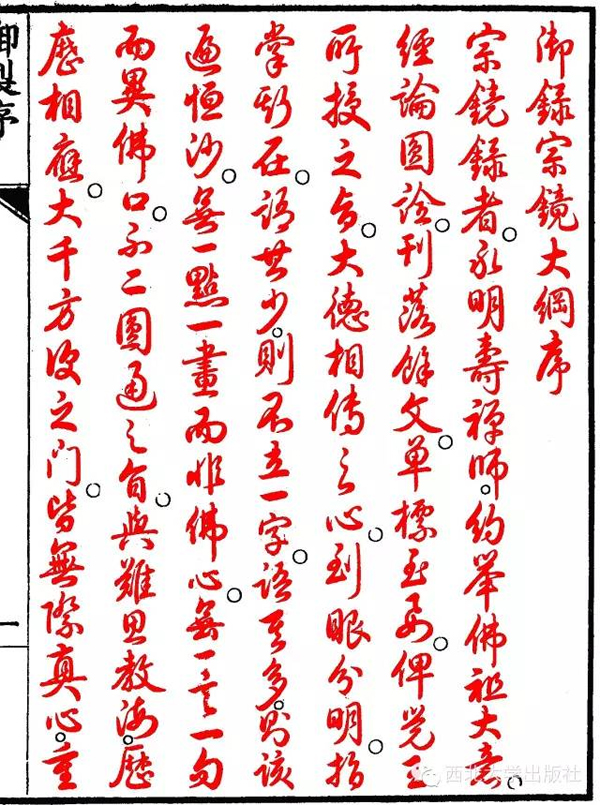 御錄宗鏡大綱序
宗鏡錄者。永明壽禪師。約舉佛祖大意。
經論圓詮。刊落餘文。單標至要。俾覺王
所授之旨。大德相傳之心。到眼分明。指
掌斯在。語其少。則不立一字。語其多。則該
遍恒沙。無一點一畫而非佛心。無一言一句
而異佛口。不二圓通之旨。與難思教海。歷
歷相應。大千方便之門。皆無際真心。重
御製序
一
西北大学出版社